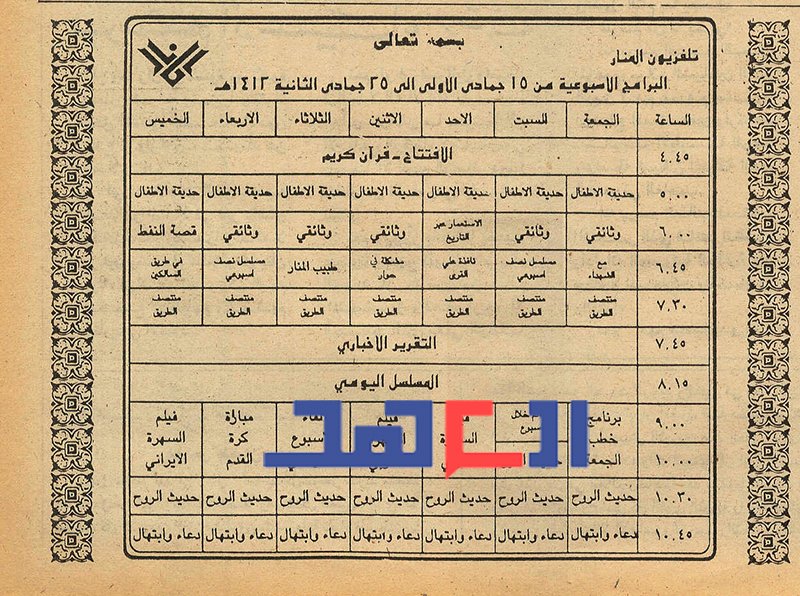 بسمه تعالى
تلفزيون المنار
البرامج الاسبوعية من ١٥ جمادى الاولى الى ٢٥ جمادى الثانية ١٤١٢هـ
الساعة الجمعة السبت الاحد الاثنين الثلاثاء الاربعاء الخميس
٤،٤٥ الافتتاح - قرآن كريم
٥،٠٠ حديقة الاطفال حديقة الاطفال حديقة الاطفال حديقة الاطفال حديقة الاطفال حديقة الاطفال حديقة الاطفال
٦،٠٠ وثائقي وثائقي الاستعمار عبر التاريخ وثائقي وثائقي وثائقي قصة النفط
٦،٤٥ مع الشهداء مسلسل نصف اسبوعي نافذة على القرى مشكلة في حوار طبيب المنار مسلسل نصف اسبوعي في طريق السالكين
٧،٣٠ منتصف الطريق منتصف الطريق منتصف الطريق منتصف الطريق منتصف الطريق منتصف الطريق منتصف الطريق
٧،٤٥ التقرير الاخباري
٨،١٥ المسلسل اليومي
٩،٠٠ برنامج خلال فيلم مباراة فيلم
خطبة السهرة كرة السهرة
١٠،٠٠ الجمعة القدم الايراني
العهد
١٠،٣٠ حديث الروح حديث الروح حديث الروح حديث الروح حديث الروح حديث الروح حديث الروح
١٠،٤٥ دعاء وابتهال دعاء وابتهال دعاء وابتهال دعاء وابتهال دعاء وابتهال دعاء وابتهال دعاء وابتهال